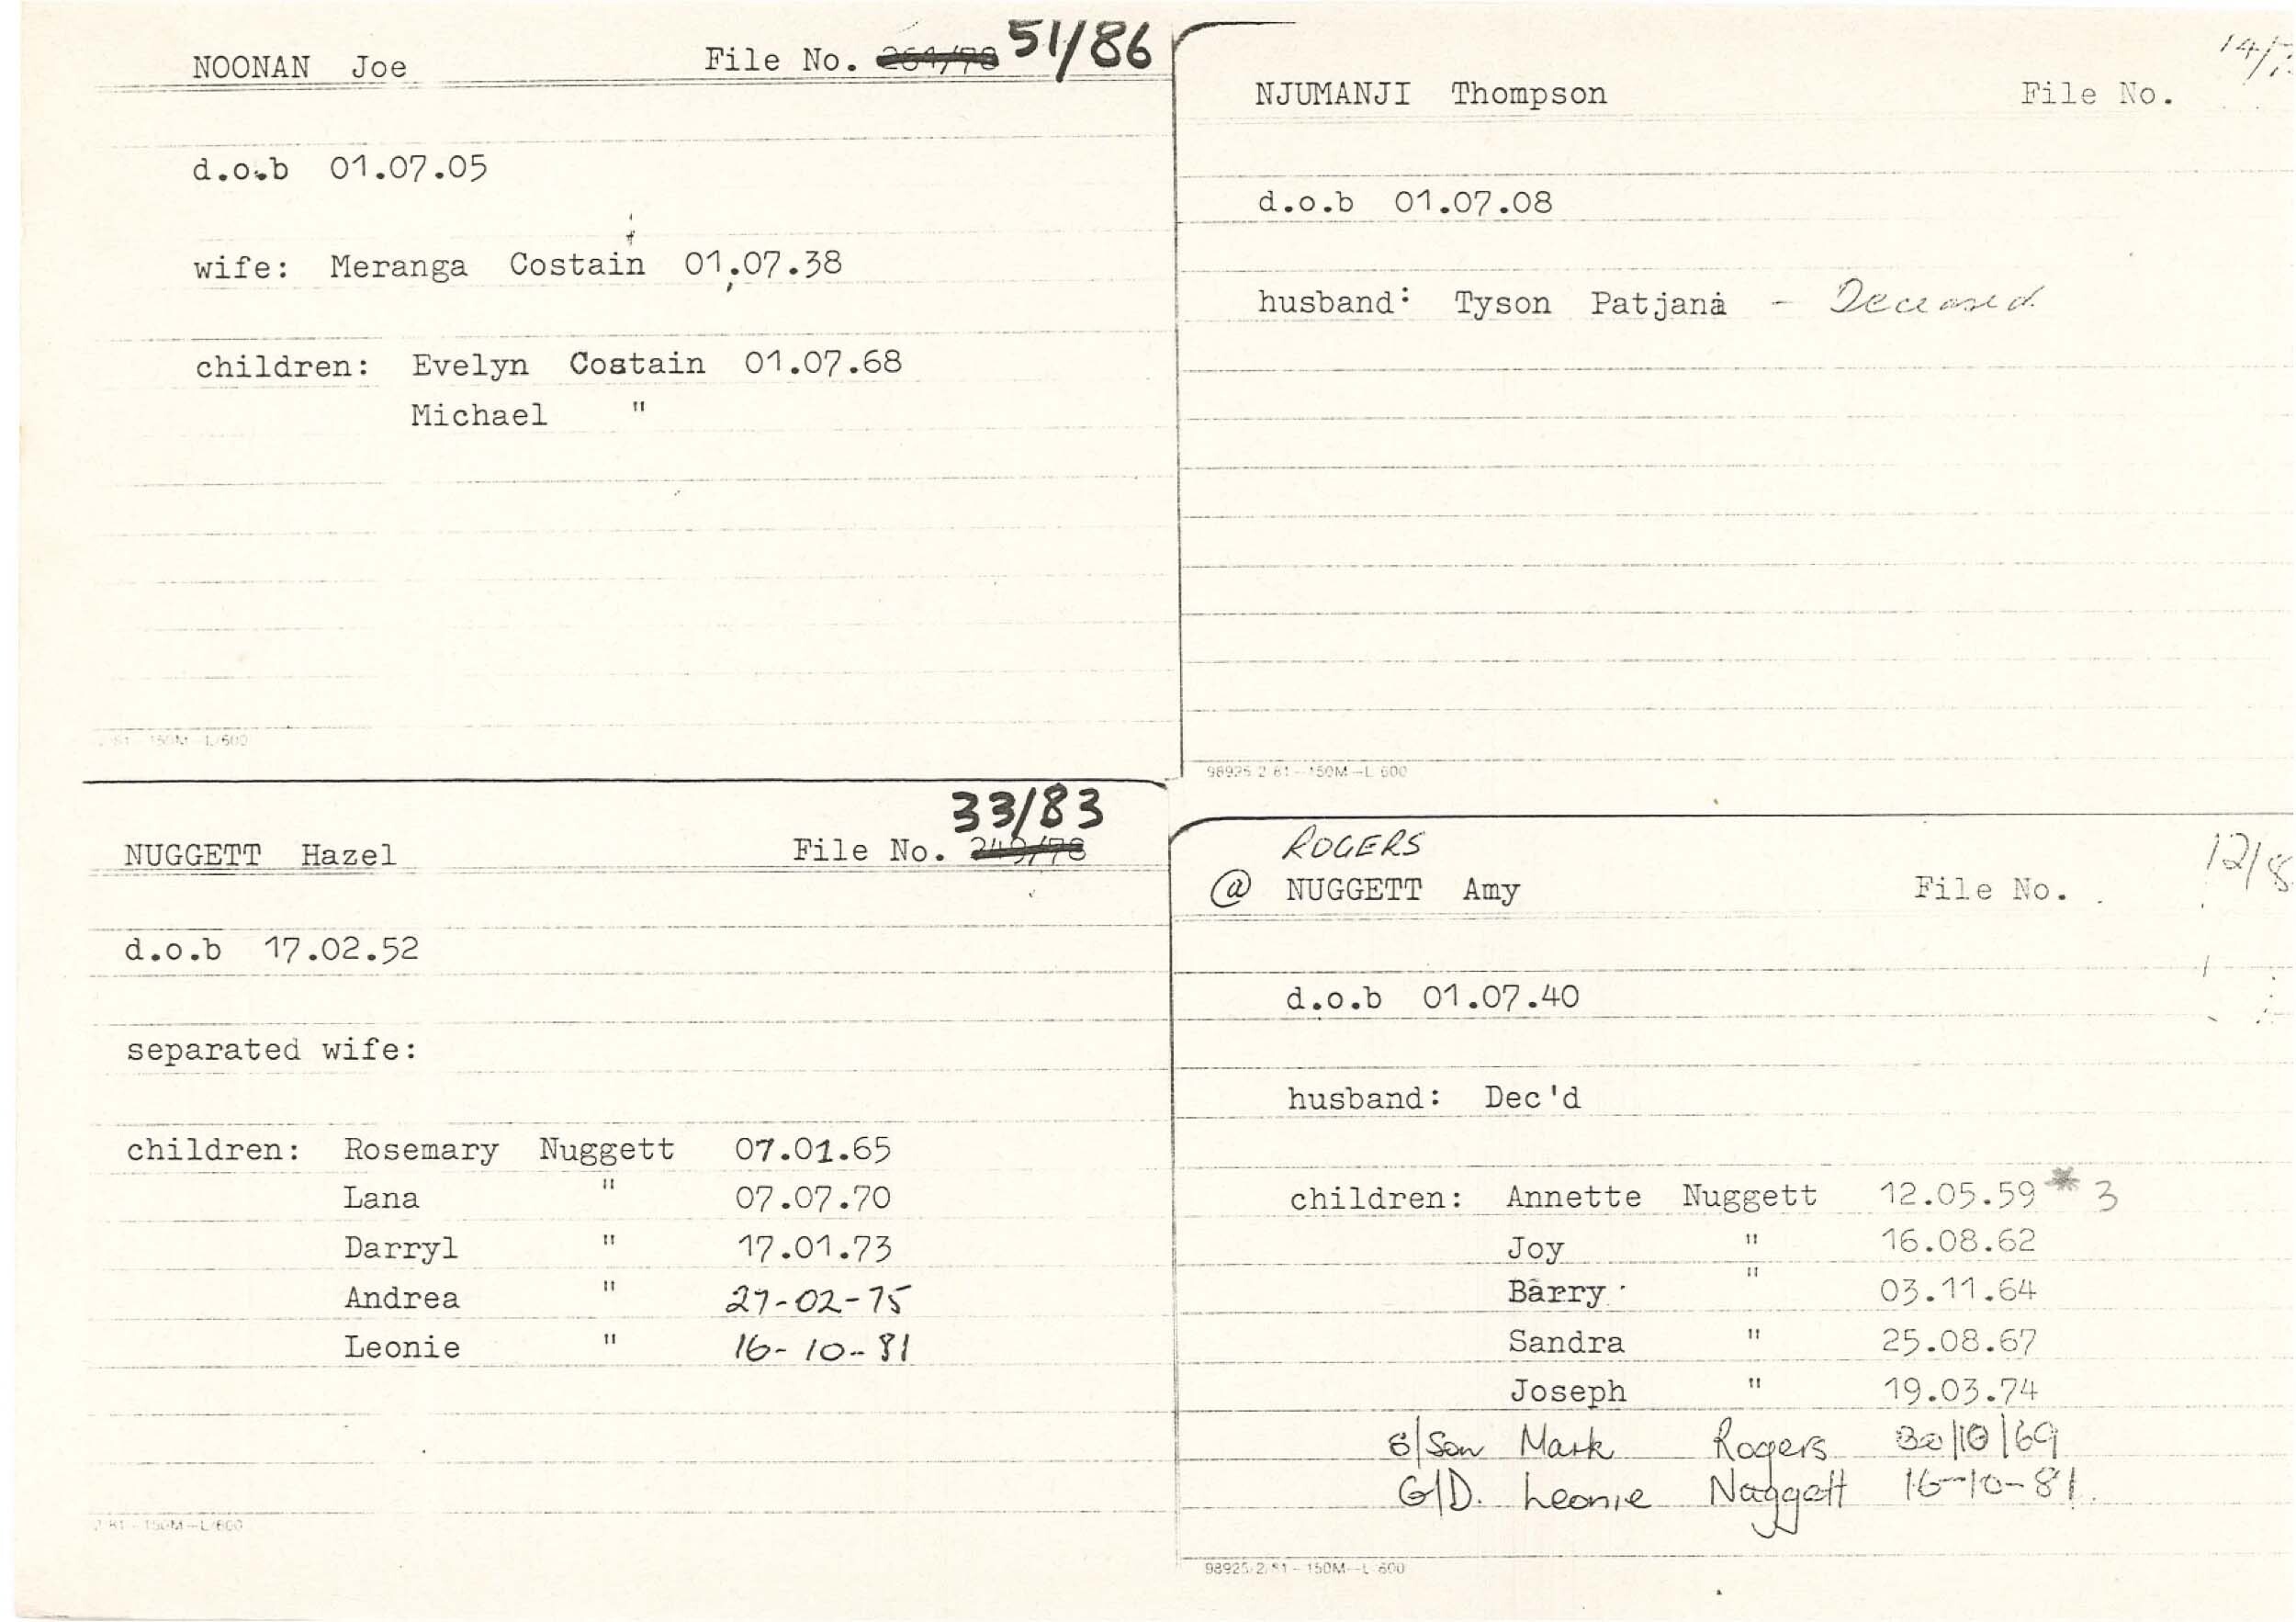 NOONAN Joe File No. 51/86
d.o.b 01.07.05
wife: Meranga Costain 01.07.38
children: Evelyn Costain 01.07.68
Michael "
NJUMANJI Thompson File No. 14/
d.o.b 01.07.08
husband: Tyson Patjana - Deceased
98925/2/81-150M-L/600
33/83
NUGGETT Hazel File No. 249/78
d.o.b 17.02.52
separated wife:
children: Rosemary Nuggett 07.01.65
Lana " 07.07.70
Darryl " 17.01.73
Andrea " 27-02-75
Leonie " 16-10-81
2/81-150M-L/600
ROGERS
@ NUGGETT Amy File No. 12/8
d.o.b 01.07.40
husband: Dec'd
children: Annette Nuggett 12.05.59 * 3
Joy " 16.08.62
Barry " 03.11.64
Sandra " 25.08.67
Joseph " 19.03.74
S/Son Mark Rogers 30/10/69
G/D. Leonie Nuggett 16-10-81
98925/2/81-150M-L/600